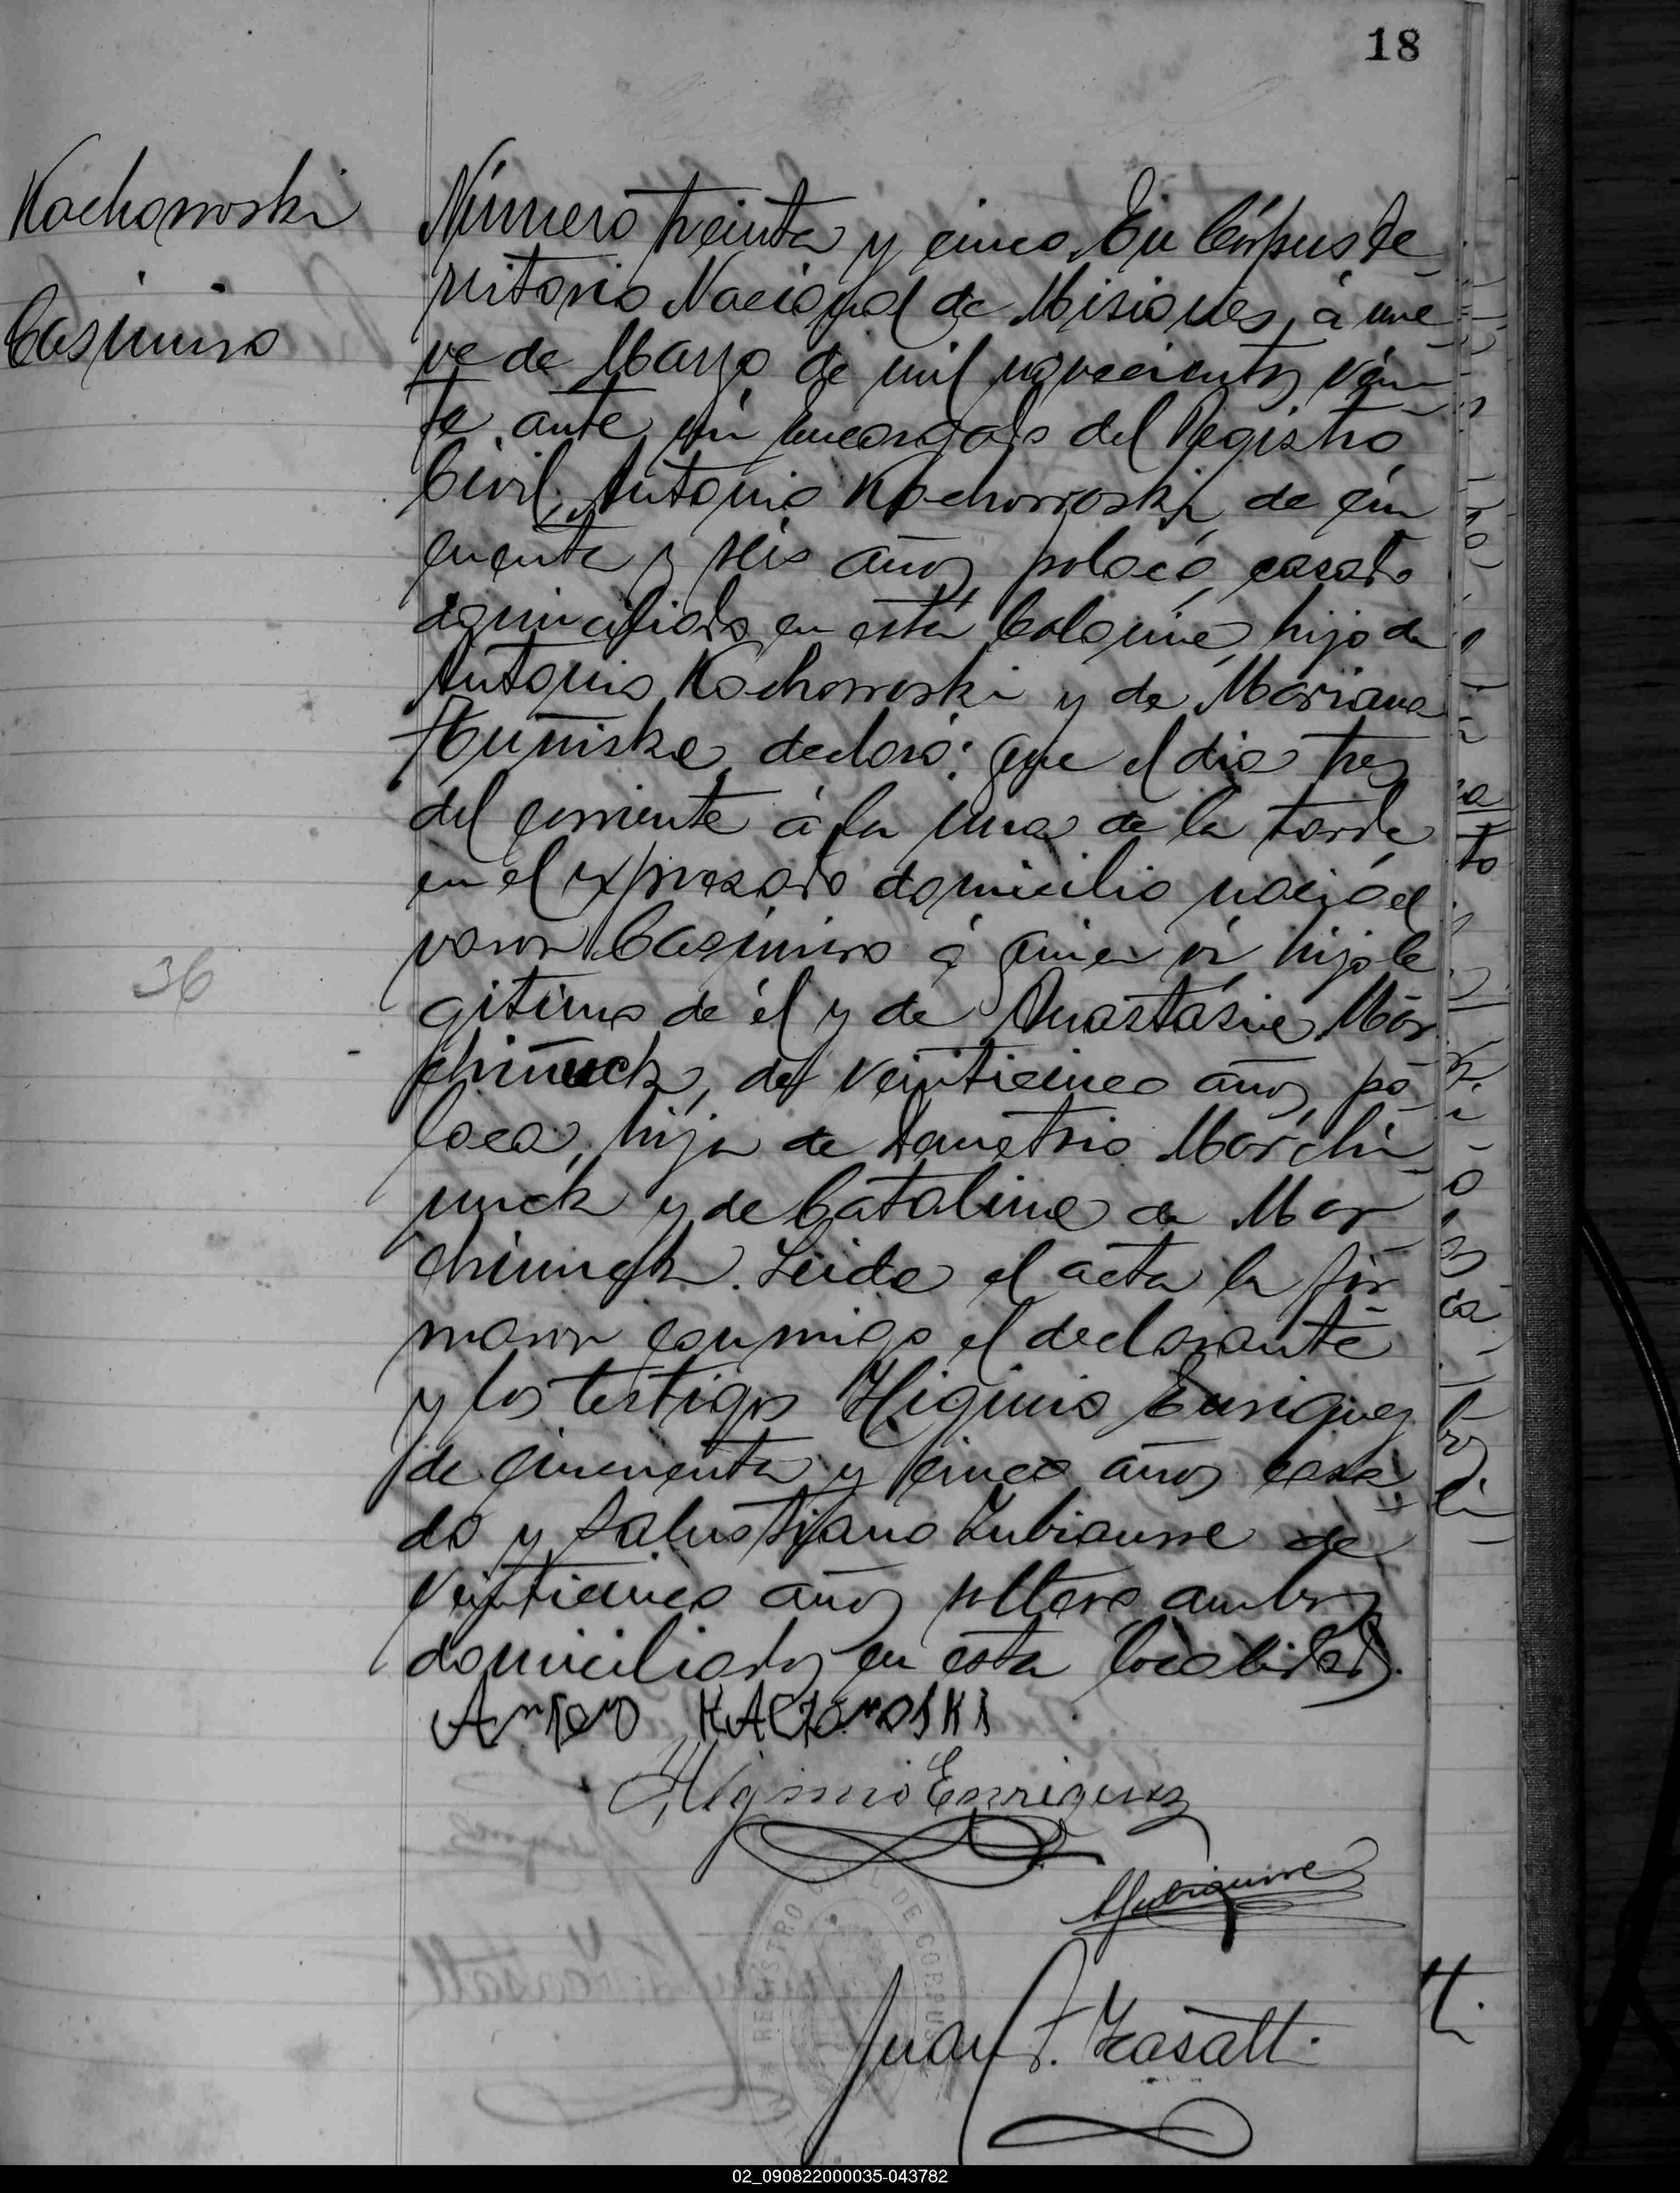 18
Kochorroski
Casimiro
Número treinta y cinco. En Córpus Te
rritorio Nacional de Misiones, á nue
ve de Marzo de mil novecientos vein
te, ante mi Encargado del Registro
Civil, Antonio Kochorroski, de cin
cuenta y seis años, polaco, casado
domiciliado en esta Colonia, hijo de
Antonio Kochorroski y de Mariana
declaró: Que el dia tres
del corriente á la una de la tarde
en el expresado domicilio nació el
varon Casimiro á quien vi, hijo le
gitimo de él y de Anastasia Mar
chinuck, de veinticinco años, po
laca, hija de Demetrio Marchi
nuck y de Catalina de Mar
chinuck. Leida el acta la fir
maron conmigo el declarante
y los testigos Higinio Enriquez
de cincuenta y cinco años casa
do y Salustiano Zubiaurre de
veinticinco años soltero ambos
domiciliados en esta localidad.
36
Higinio Enriquez
Zubiaurre
Juan F.
REGISTRO CIVIL DE CORPUS
02_090822000035-043782